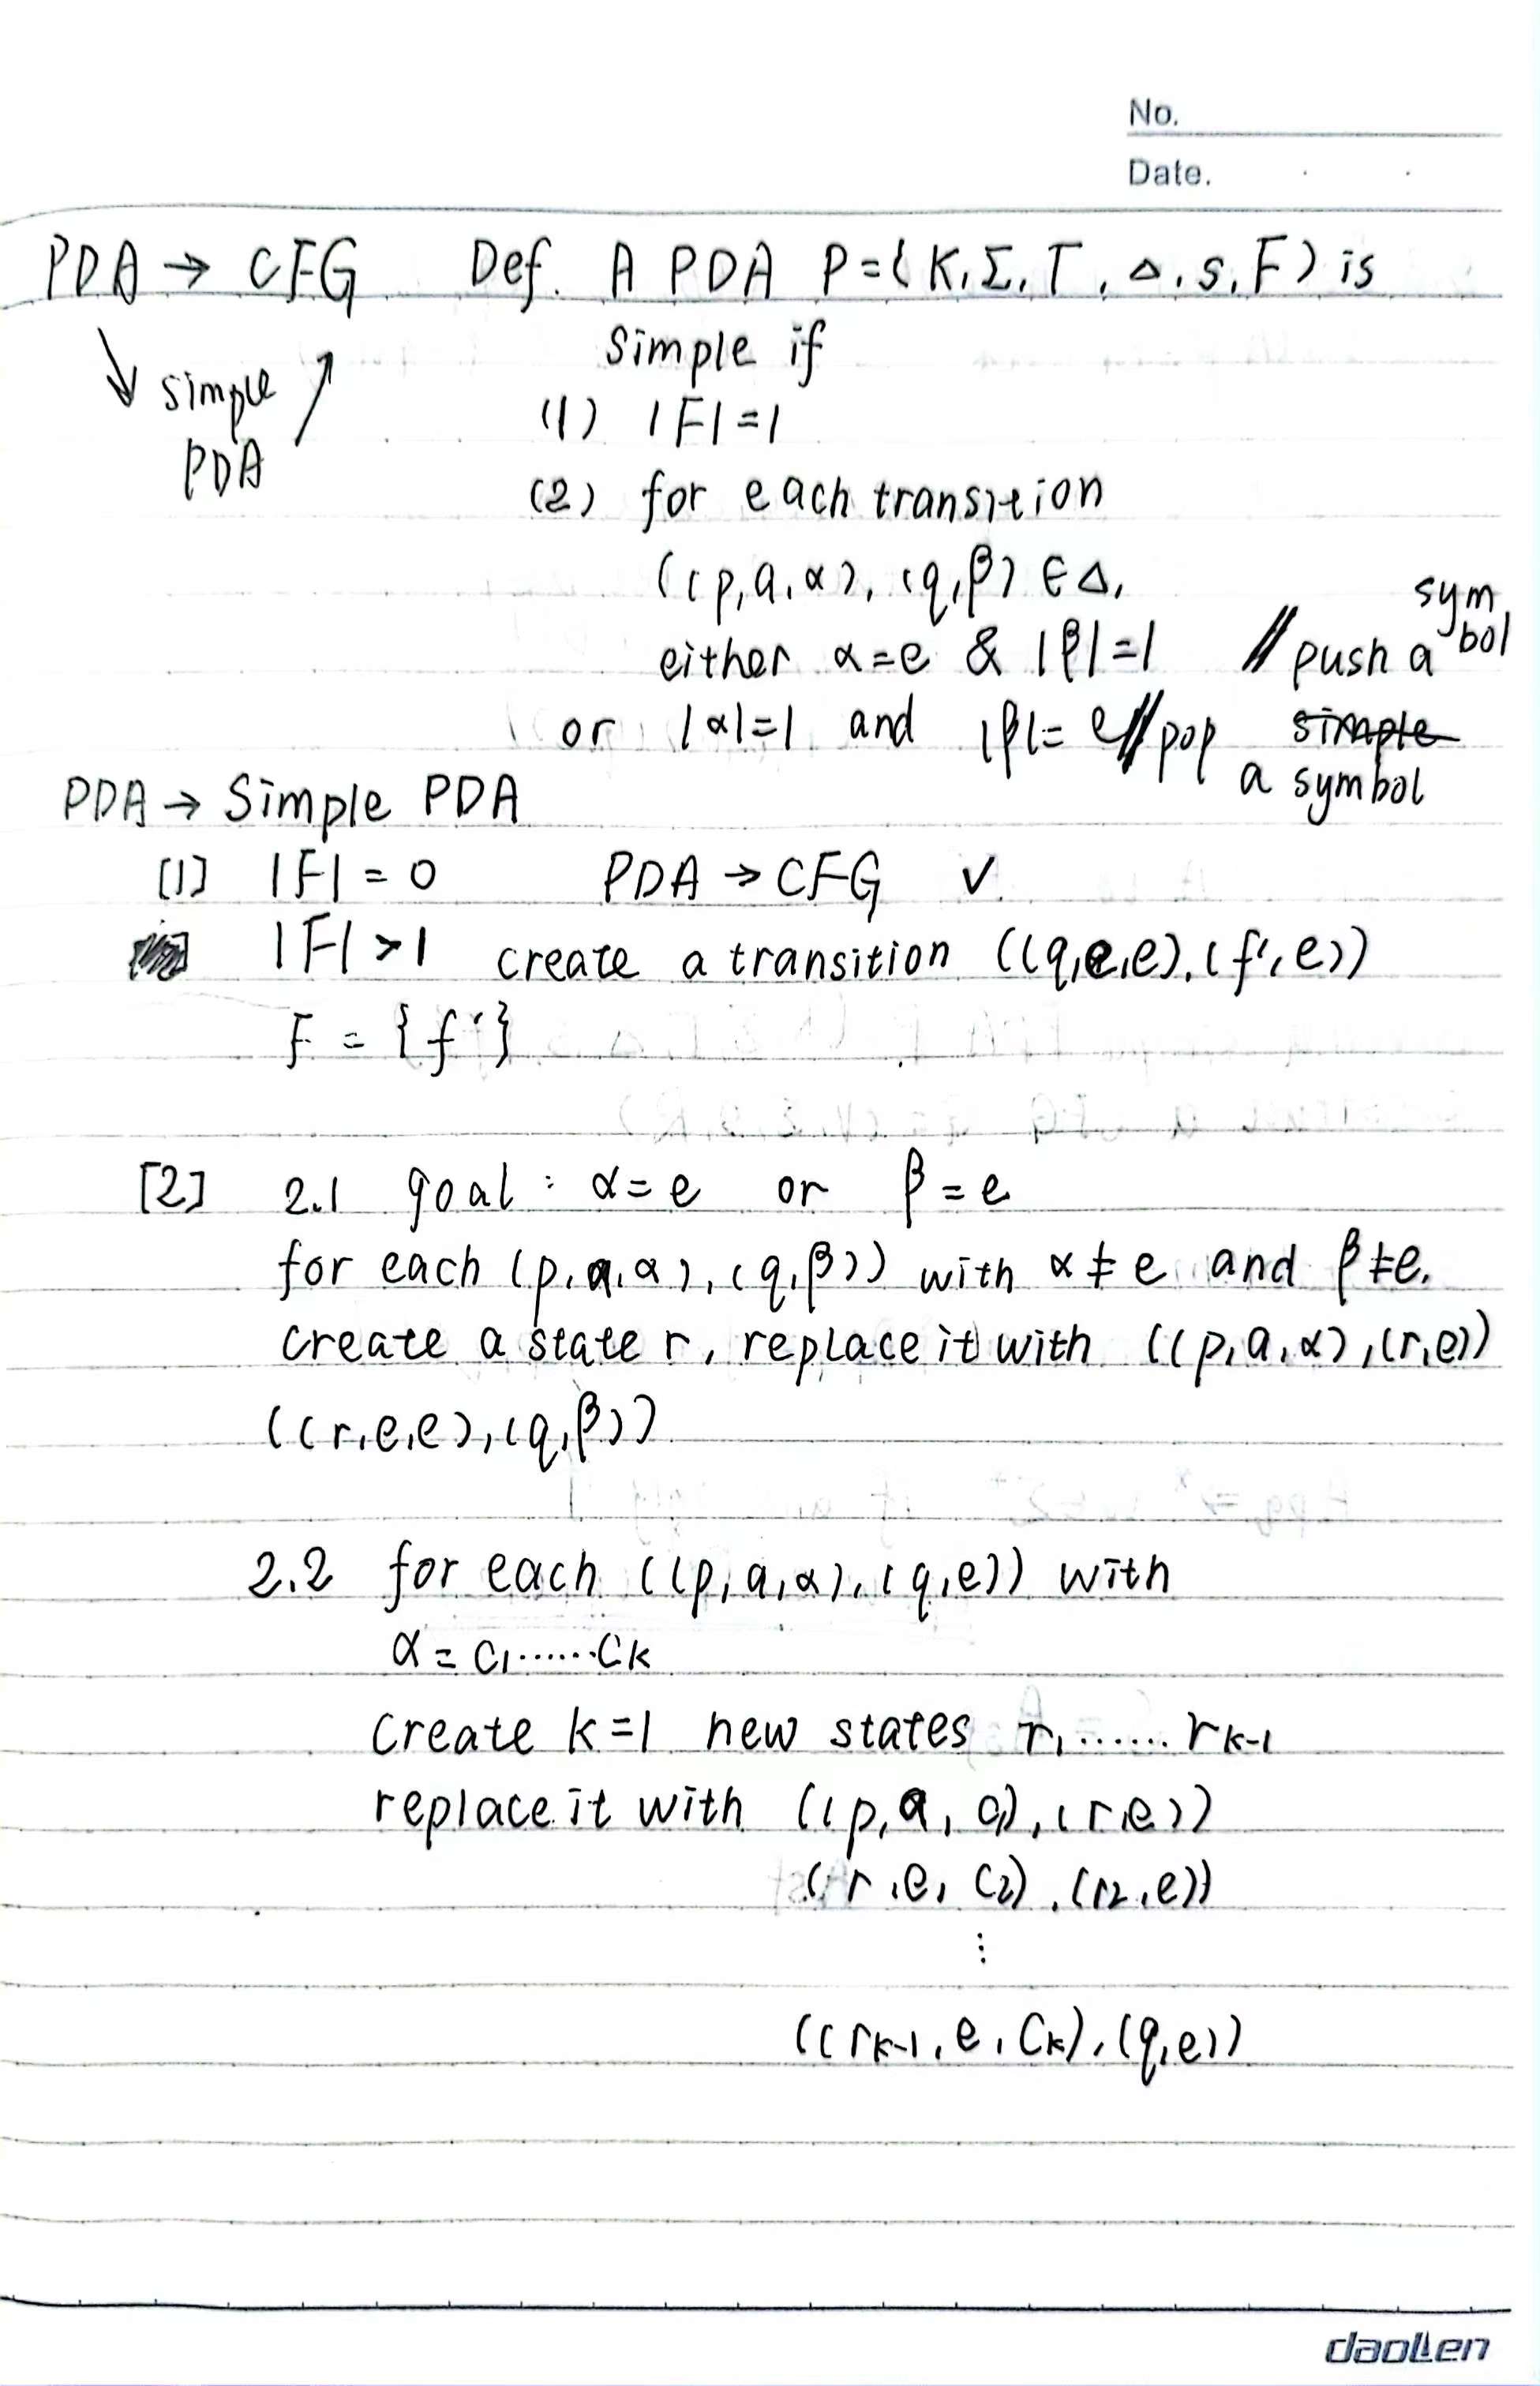 No.
Date.
PDA → CFG Def. A PDA P=(K,Σ,Γ,Δ,s,F) is
simple if
↓ simple ↗
PDA
(1) |F|=1
(2) for each transition
((p,a,α),(q,β) ∈Δ,
either α=e & |β|=1 // push a symbol
or |α|=1 and |β|= e // pop simple
a symbol
PDA → Simple PDA
[1] |F| = 0 PDA → CFG ✓.
|F| > 1 create a transition ((q,e,e),(f',e))
F = {f'}
[2] 2.1 goal : α=e or β=e
for each (p,a,α),(q,β)) with α≠e and β≠e.
create a state r, replace it with ((p,a,α),(r,e))
((r,e,e),(q,β))
2.2 for each ((p,a,α),(q,e)) with
α = c₁······cₖ
create k=1 new states r₁······rₖ₋₁
replace it with ((p,a,c₁),(r,e))
(r,e,c₂),(r₂,e))
⋮
((rₖ₋₁,e,cₖ),(q,e))
daollen